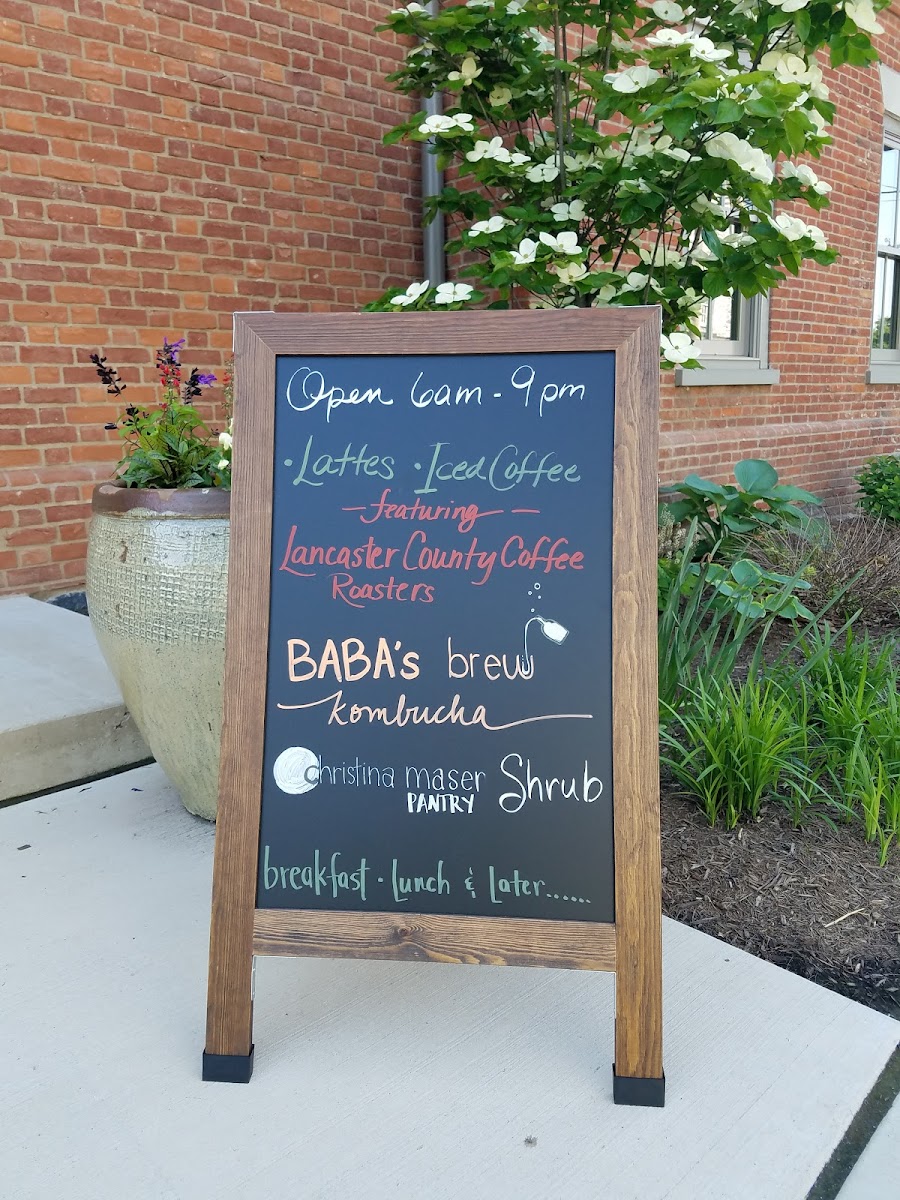 Open 6am - 9pm
·Lattes ·Iced Coffee
- featuring -
Lancaster County Coffee
Roasters
BABA's brew
kombucha
christina maser Shrub
PANTRY
breakfast · Lunch & Later......